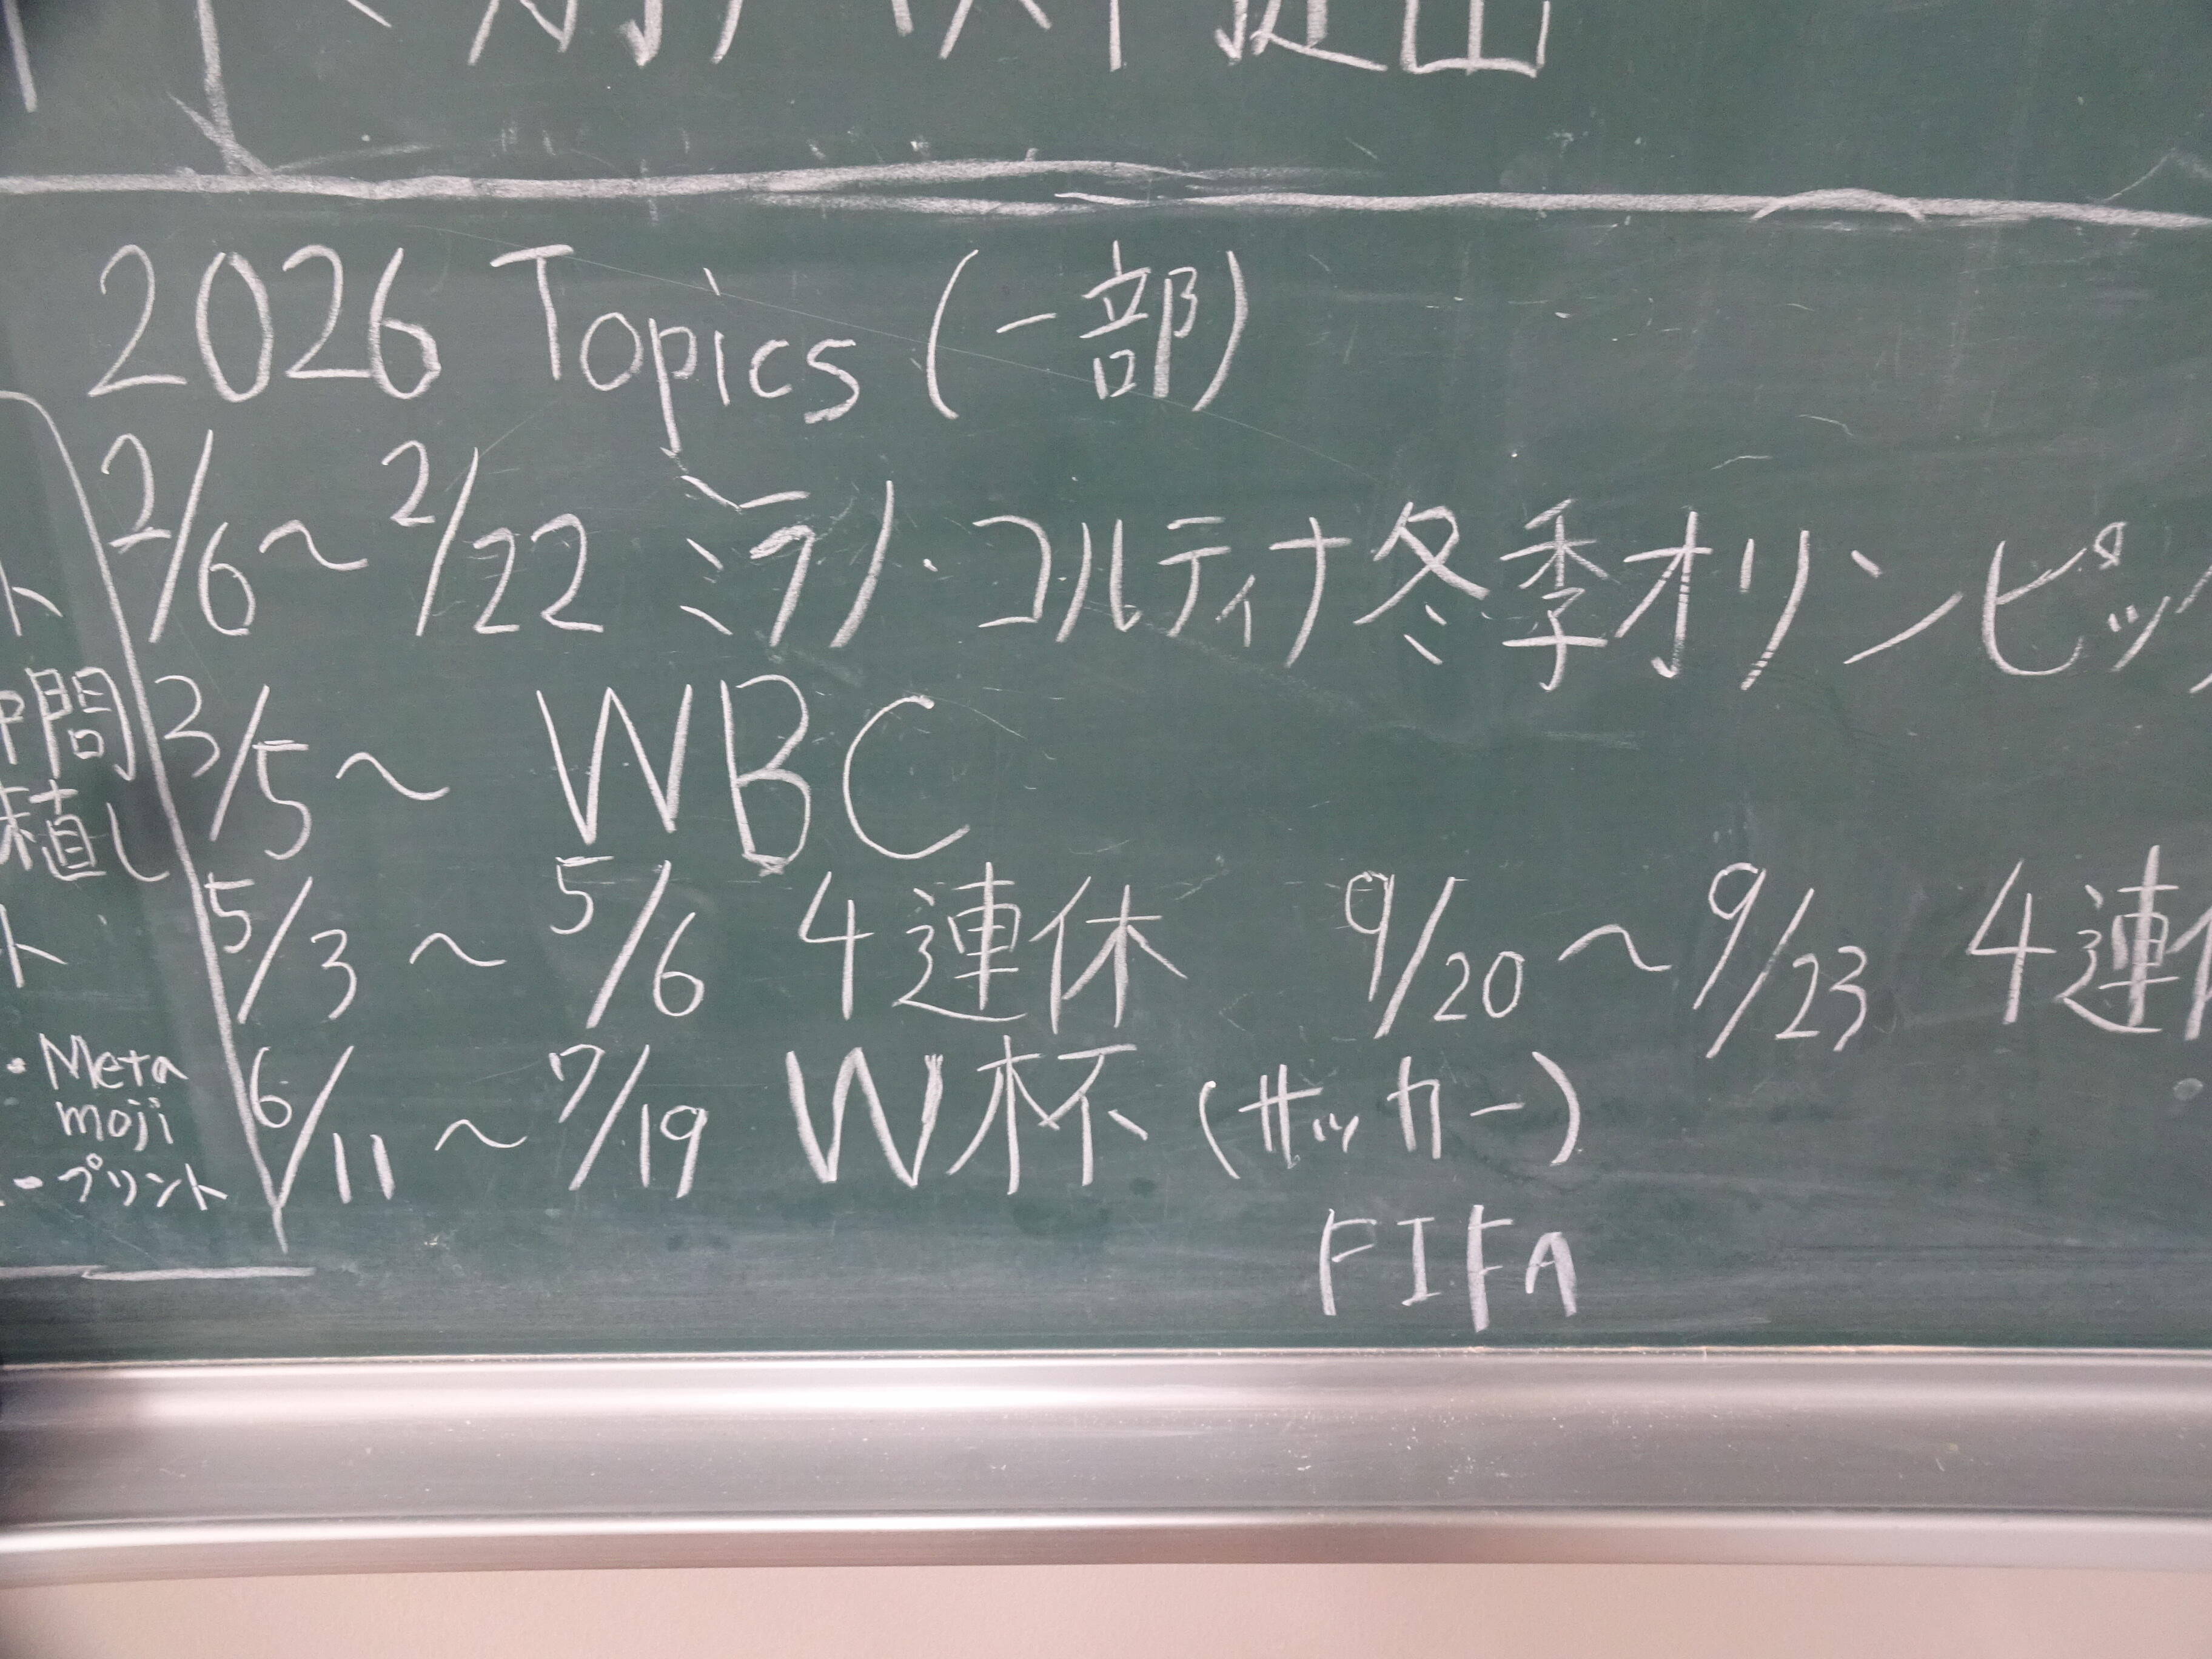 提出
2026 Topics (一部)
2/6～2/22 ミラノ・コルティナ冬季オリンピッ
3/5～ WBC
5/3～5/6 4連休 9/20～9/23 4連休
6/11～7/19 W杯(サッカー)
FIFA
ト
問
直し
ト
・Meta
moji
・プリント